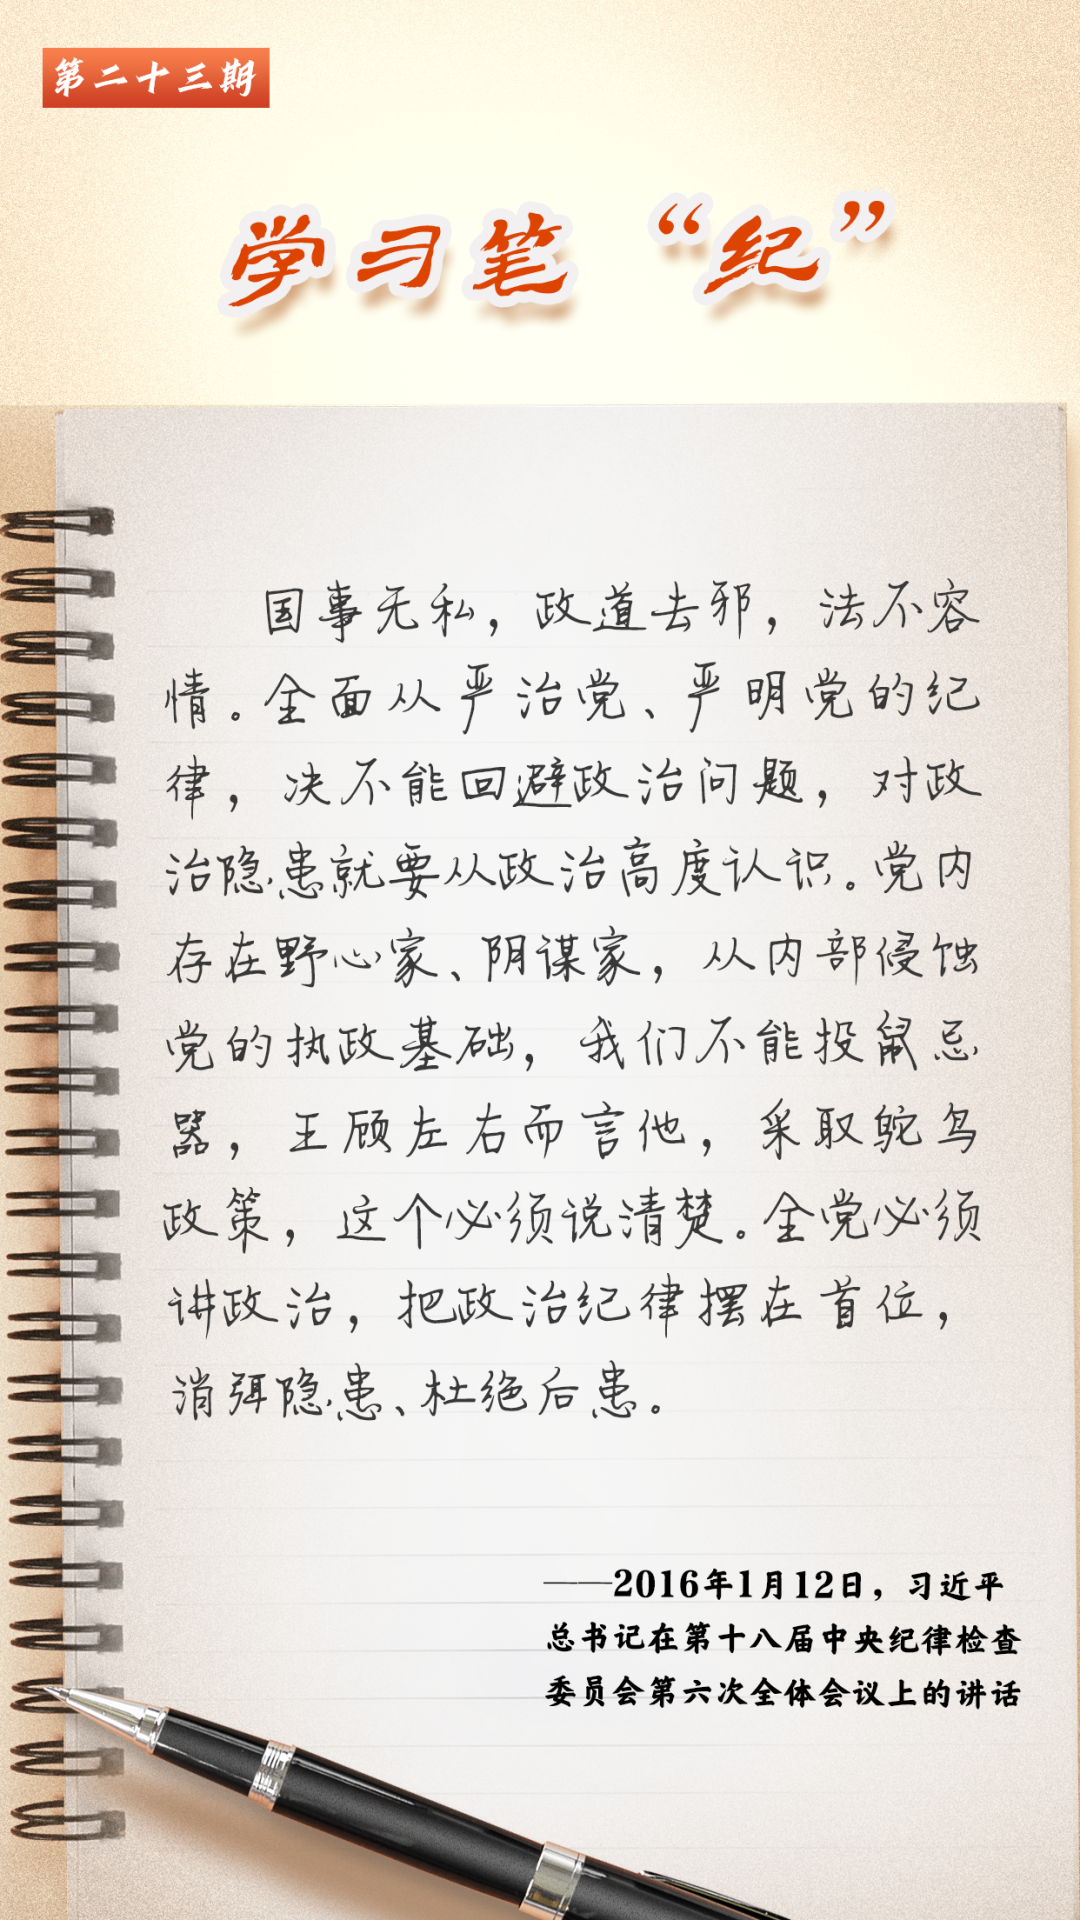 第二十三期
学习笔“纪”
国事无私，政道去邪，法不容
情。全面从严治党、严明党的纪
律，决不能回避政治问题，对政
治隐患就要从政治高度认识。党内
存在野心家、阴谋家，从内部侵蚀
党的执政基础，我们不能投鼠忌
器，王顾左右而言他，采取鸵鸟
政策，这个必须说清楚。全党必须
讲政治，把政治纪律摆在首位，
消弭隐患、杜绝后患。
——2016年1月12日，习近平
总书记在第十八届中央纪律检查
委员会第六次全体会议上的讲话